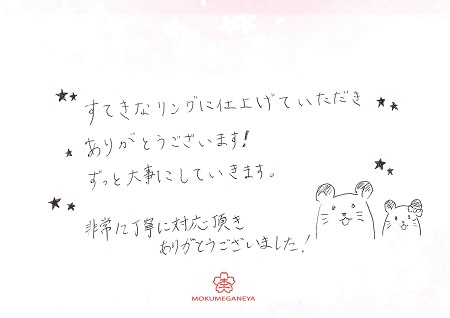 すてきなリングに仕上げていただき
ありがとうございます!
ずっと大事にしていきます。
非常に丁寧に対応頂き
ありがとうございました!
MOKUMEGANEYA